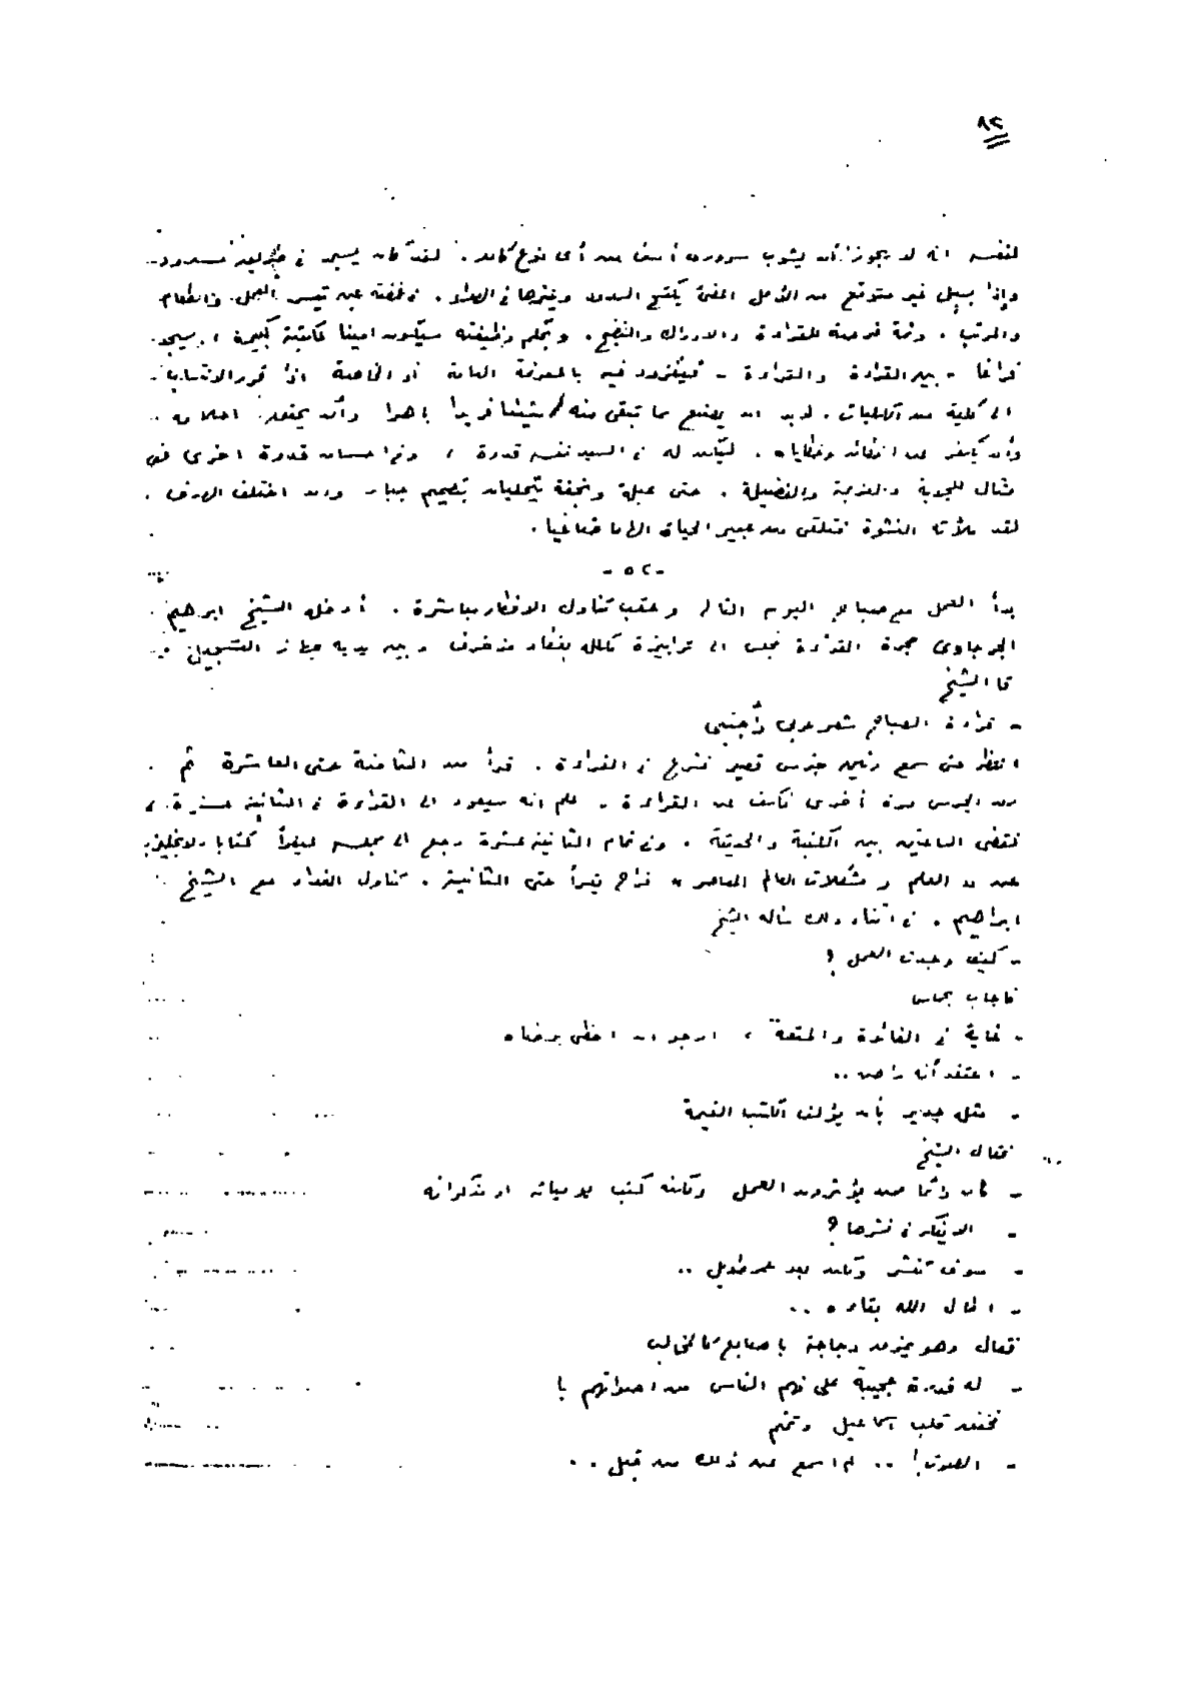 ٨٢
لنفسه انه لا يجوز أن يشوب سروره أسف من أى نوع كان . لقد كان يسير فى طريق مسدود
وإذا بسيل غير متوقع من الأمل المضئ يكتسح السدود وغيرها فى العطاء . فى غمضة عين تيسر العمل والطعام
والمرتب . وثمة فرصة للقراءة والادراك والنضج . وبحكم وظيفته سيكون امينا لمكتبة كبيرة ، سيجد
فراغا - بين القراءة والقراءة - فيتزود فيه بالمعرفة العامة أو الخاصة اذا قرر الانتساب
الى كلية من الكليات . لابد ان يصنع مما تبقى منه شيئا فريدا باهرا وأن يحقق احلامه ..
وأن يكفر عن اخطائه وخطاياه . ليكن له فى السيد نفسه قدوة ، وفى احسان قدوة اخرى فهى
مثال للجدية والعزيمة والفضيلة . حتى عبلة وتحفة تتحليان بتصميم جبار وان اختلف الهدف .
لقد ملأته النشوة فتلقى من عبير الحياة الهاما ضافيا .
- ٥٢ -
بدأ العمل مع صباح اليوم التالى وعقب تناول الافطار مباشرة . أدخله الشيخ ابرهيم
الجرجاوى حجرة القراءة فجلس الى ترابيزة مكللة بغطاء مزخرف وبين يديه جهاز التسجيل
قال الشيخ
- قراءة الصباح شعر عربى وأجنبى
انتظر حتى سمع رنين جرس قصير فشرع فى القراءة . قرأ من الثامنة حتى العاشرة ثم
رن الجرس مرة أخرى فكف عن القراءة . علم انه سيعود الى القراءة فى الثانية عشرة ،
فقضى الساعتين بين المكتبة والحديقة . وفى تمام الثانية عشرة رجع الى مجلسه ليقرأ كتابا بالانجليزية
عن " العلم ومشكلات العالم المعاصر " فراح يقرأ حتى الثانية . تناول الغداء مع الشيخ
ابراهيم . فى اثناء ذلك سأله الشيخ
- كيف وجدت العمل ؟
فاجاب بحماس
- غاية فى الفائدة والمتعة ، ارجو ان احظى برضاه
- اعتقد أنه راض ..
- مثله جدير بأن يؤلف الكتب القيمة
فقال الشيخ
- كان دائما ممن يؤثرون العمل ولكنه كتب يومياته او مذكراته
- الا يفكر فى نشرها ؟
- سوف تنشر ولكن بعد عمر طويل ..
- اطال الله بقاءه ..
فقال وهو يمزق دجاجة باصابع كالمخالب
- له قدرة عجيبة على فهم الناس من اصواتهم !
فخفق قلب اسماعيل وتمتم
- الصوت ! .. لم اسمع عن ذلك من قبل ..